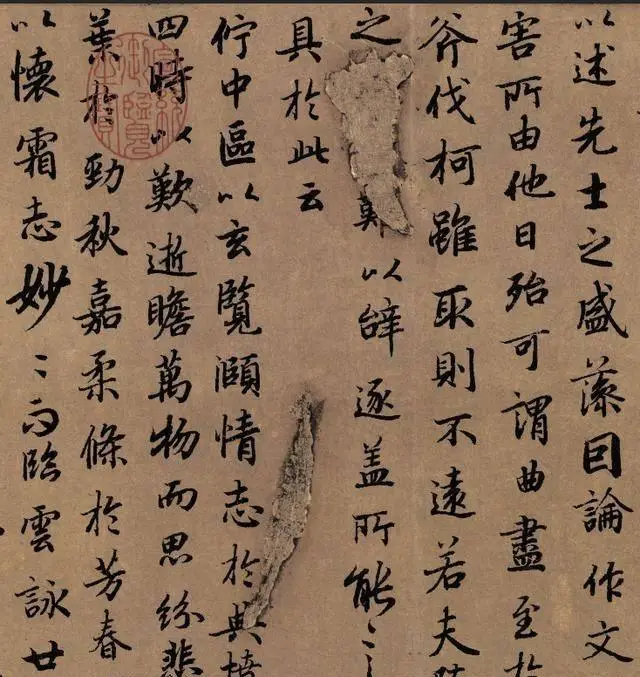 以述先士之盛藻囙論作文
害所由他日殆可謂曲盡至於
斧伐柯雖取則不遠若夫
之難以辭逐盖所能〻
具於此云
佇中區以玄覽頤情志於典墳
四時以歎逝瞻萬物而思紛悲
葉於勁秋嘉柔條於芳春
以懷霜志妙〻而臨雲詠世
宣統御覽之寶